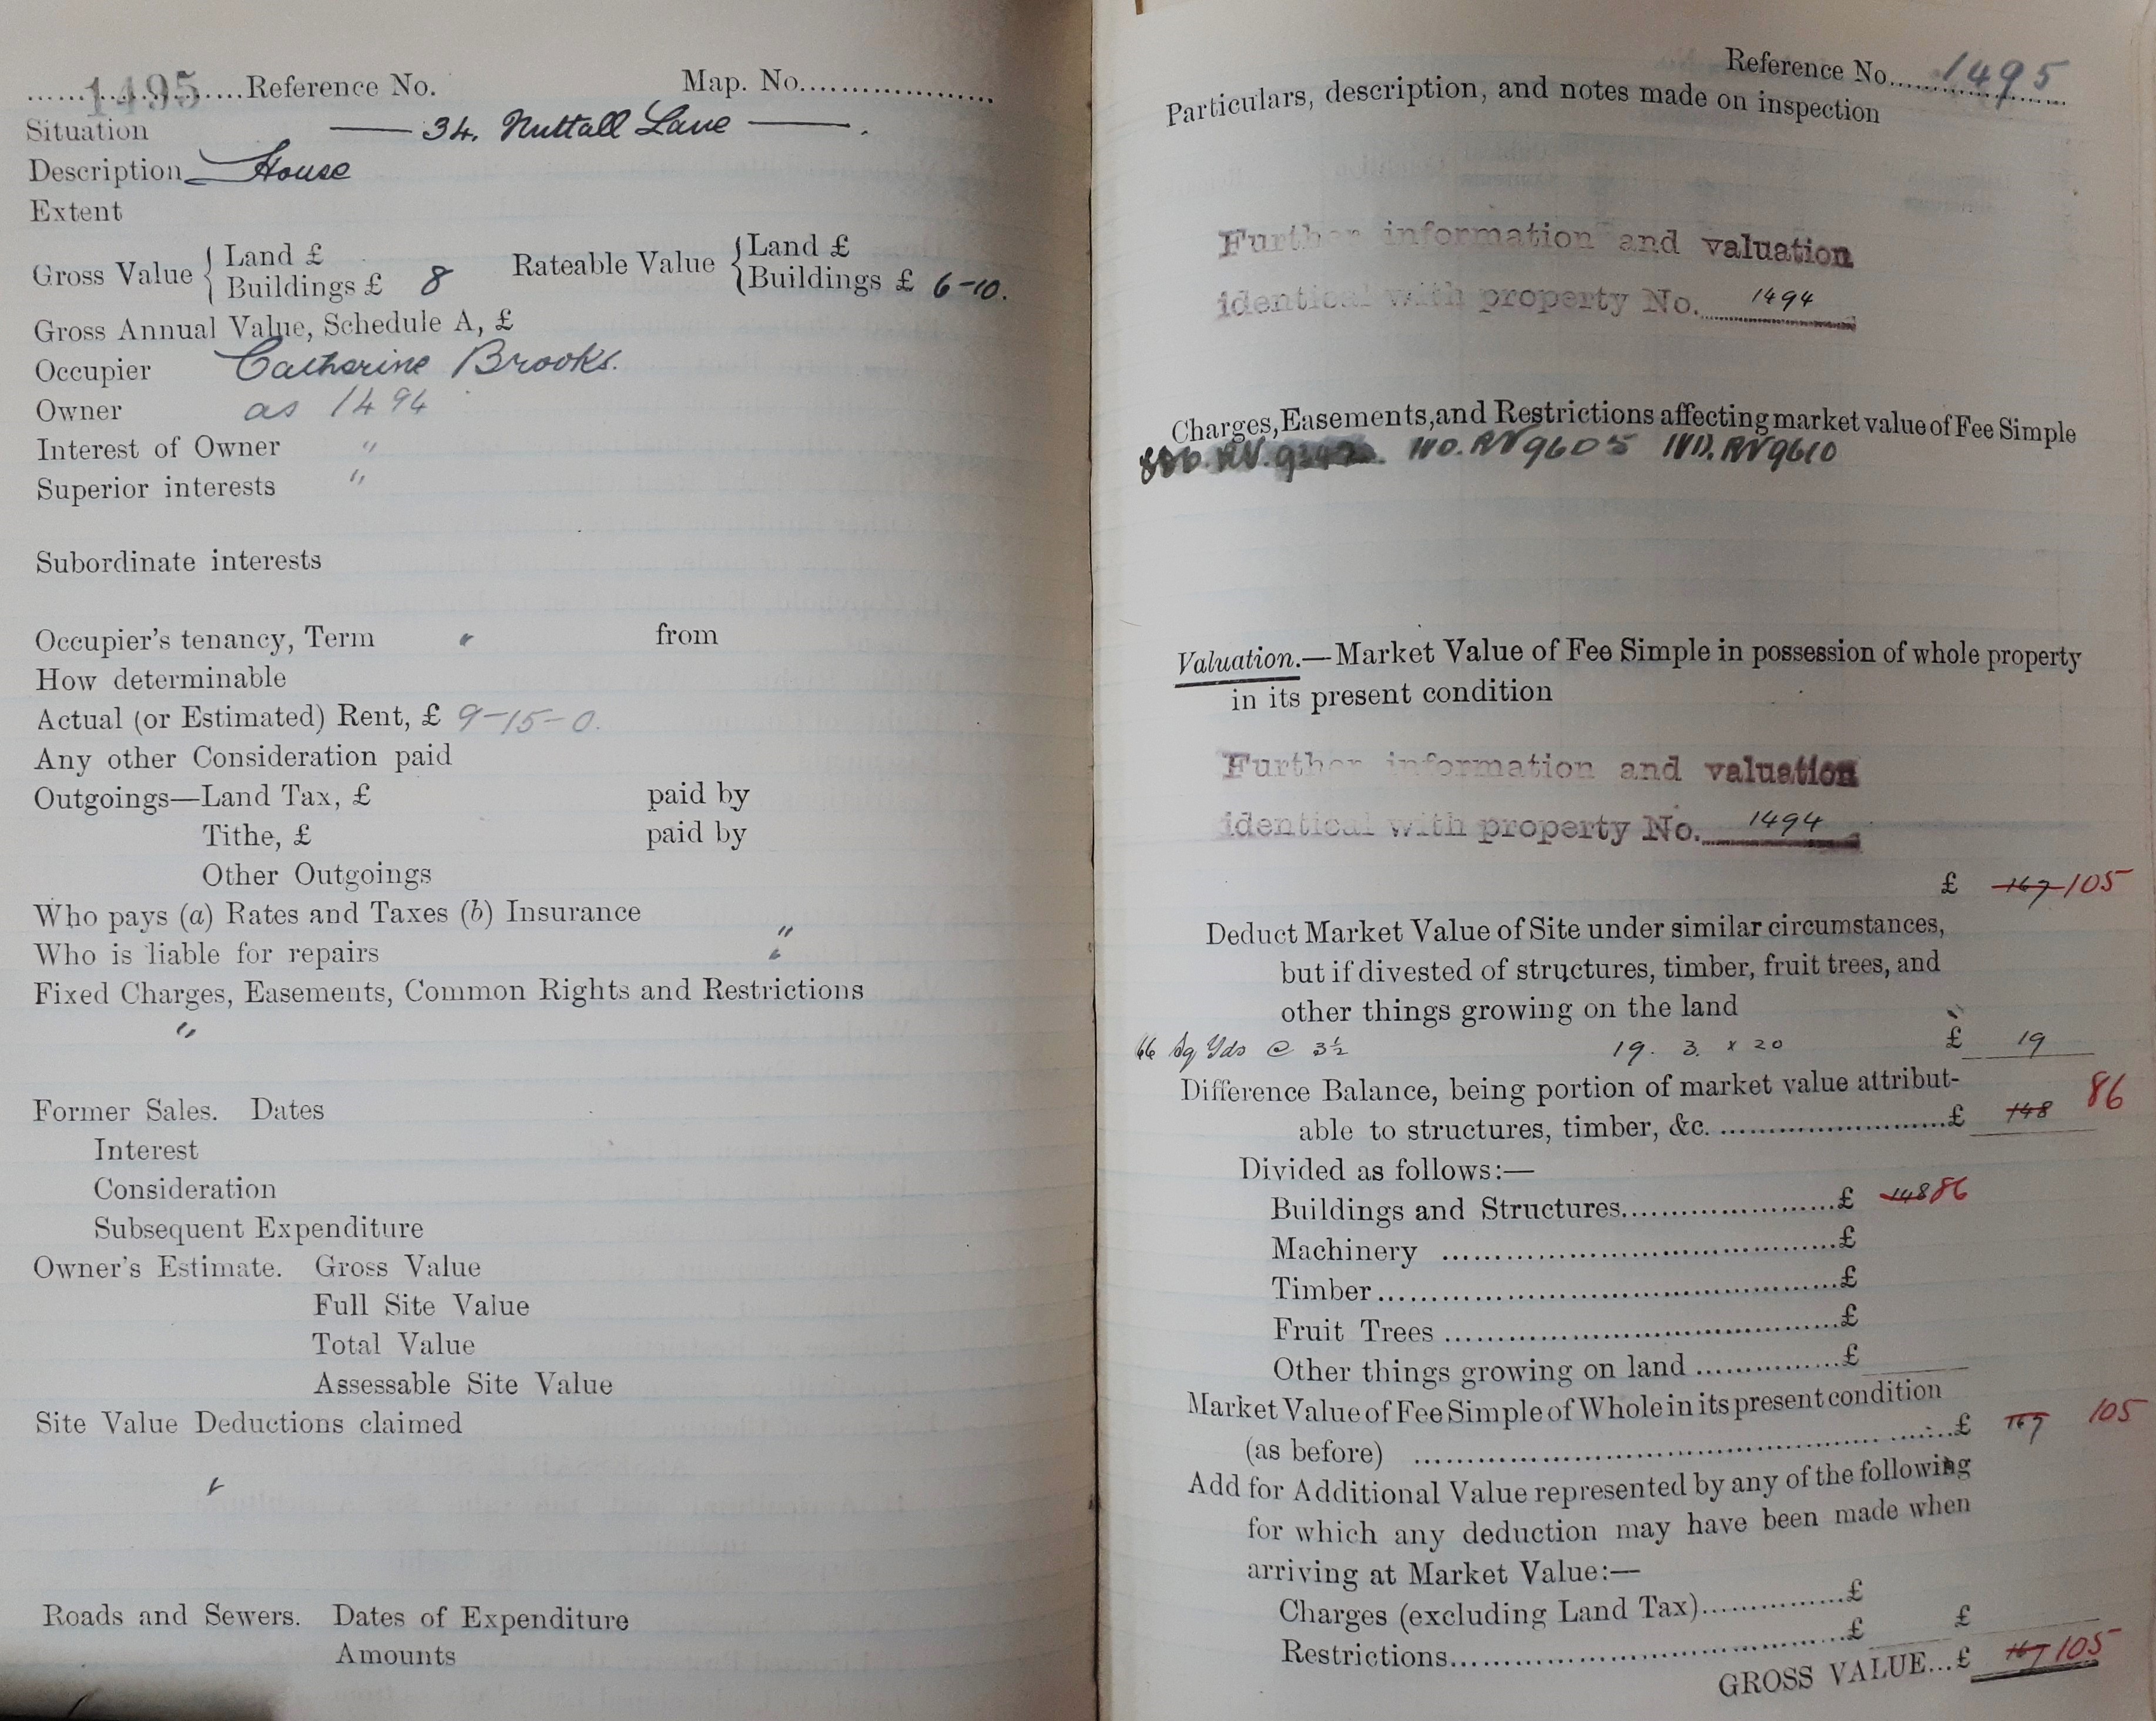 1495 Reference No. Map. No.
Situation — 34. Nuttall Lane — .
Description House
Extent
Gross Value { Land £ Rateable Value { Land £
Buildings £ 8 Buildings £ 6-10.
Gross Annual Value, Schedule A, £
Occupier Catherine Brooks.
Owner as 1494
Interest of Owner "
Superior interests "
Subordinate interests
Occupier's tenancy, Term " from
How determinable
Actual (or Estimated) Rent, £ 9-15-0.
Any other Consideration paid
Outgoings—Land Tax, £ paid by
Tithe, £ paid by
Other Outgoings
Who pays (a) Rates and Taxes (b) Insurance "
Who is liable for repairs "
Fixed Charges, Easements, Common Rights and Restrictions
"
Former Sales. Dates
Interest
Consideration
Subsequent Expenditure
Owner's Estimate. Gross Value
Full Site Value
Total Value
Assessable Site Value
Site Value Deductions claimed
"
Roads and Sewers. Dates of Expenditure
Amounts
Reference No. 1495
Particulars, description, and notes made on inspection
Further information and valuation
identical with property No. 1494
Charges, Easements, and Restrictions affecting market value of Fee Simple
RV9605 RV9610
Valuation.—Market Value of Fee Simple in possession of whole property
in its present condition
Further information and valuation
identical with property No. 1494
£ 167 105
Deduct Market Value of Site under similar circumstances,
but if divested of structures, timber, fruit trees, and
other things growing on the land
66 Sq Yds @ 3½ 19. 3. x 20 £ 19
Difference Balance, being portion of market value attribut-
able to structures, timber, &c. £ 148 86
Divided as follows:—
Buildings and Structures £ 148 86
Machinery £
Timber £
Fruit Trees £
Other things growing on land £
Market Value of Fee Simple of Whole in its present condition
(as before) £ 167 105
Add for Additional Value represented by any of the following
for which any deduction may have been made when
arriving at Market Value:—
Charges (excluding Land Tax) £
Restrictions £ £
GROSS VALUE...£ 167 105